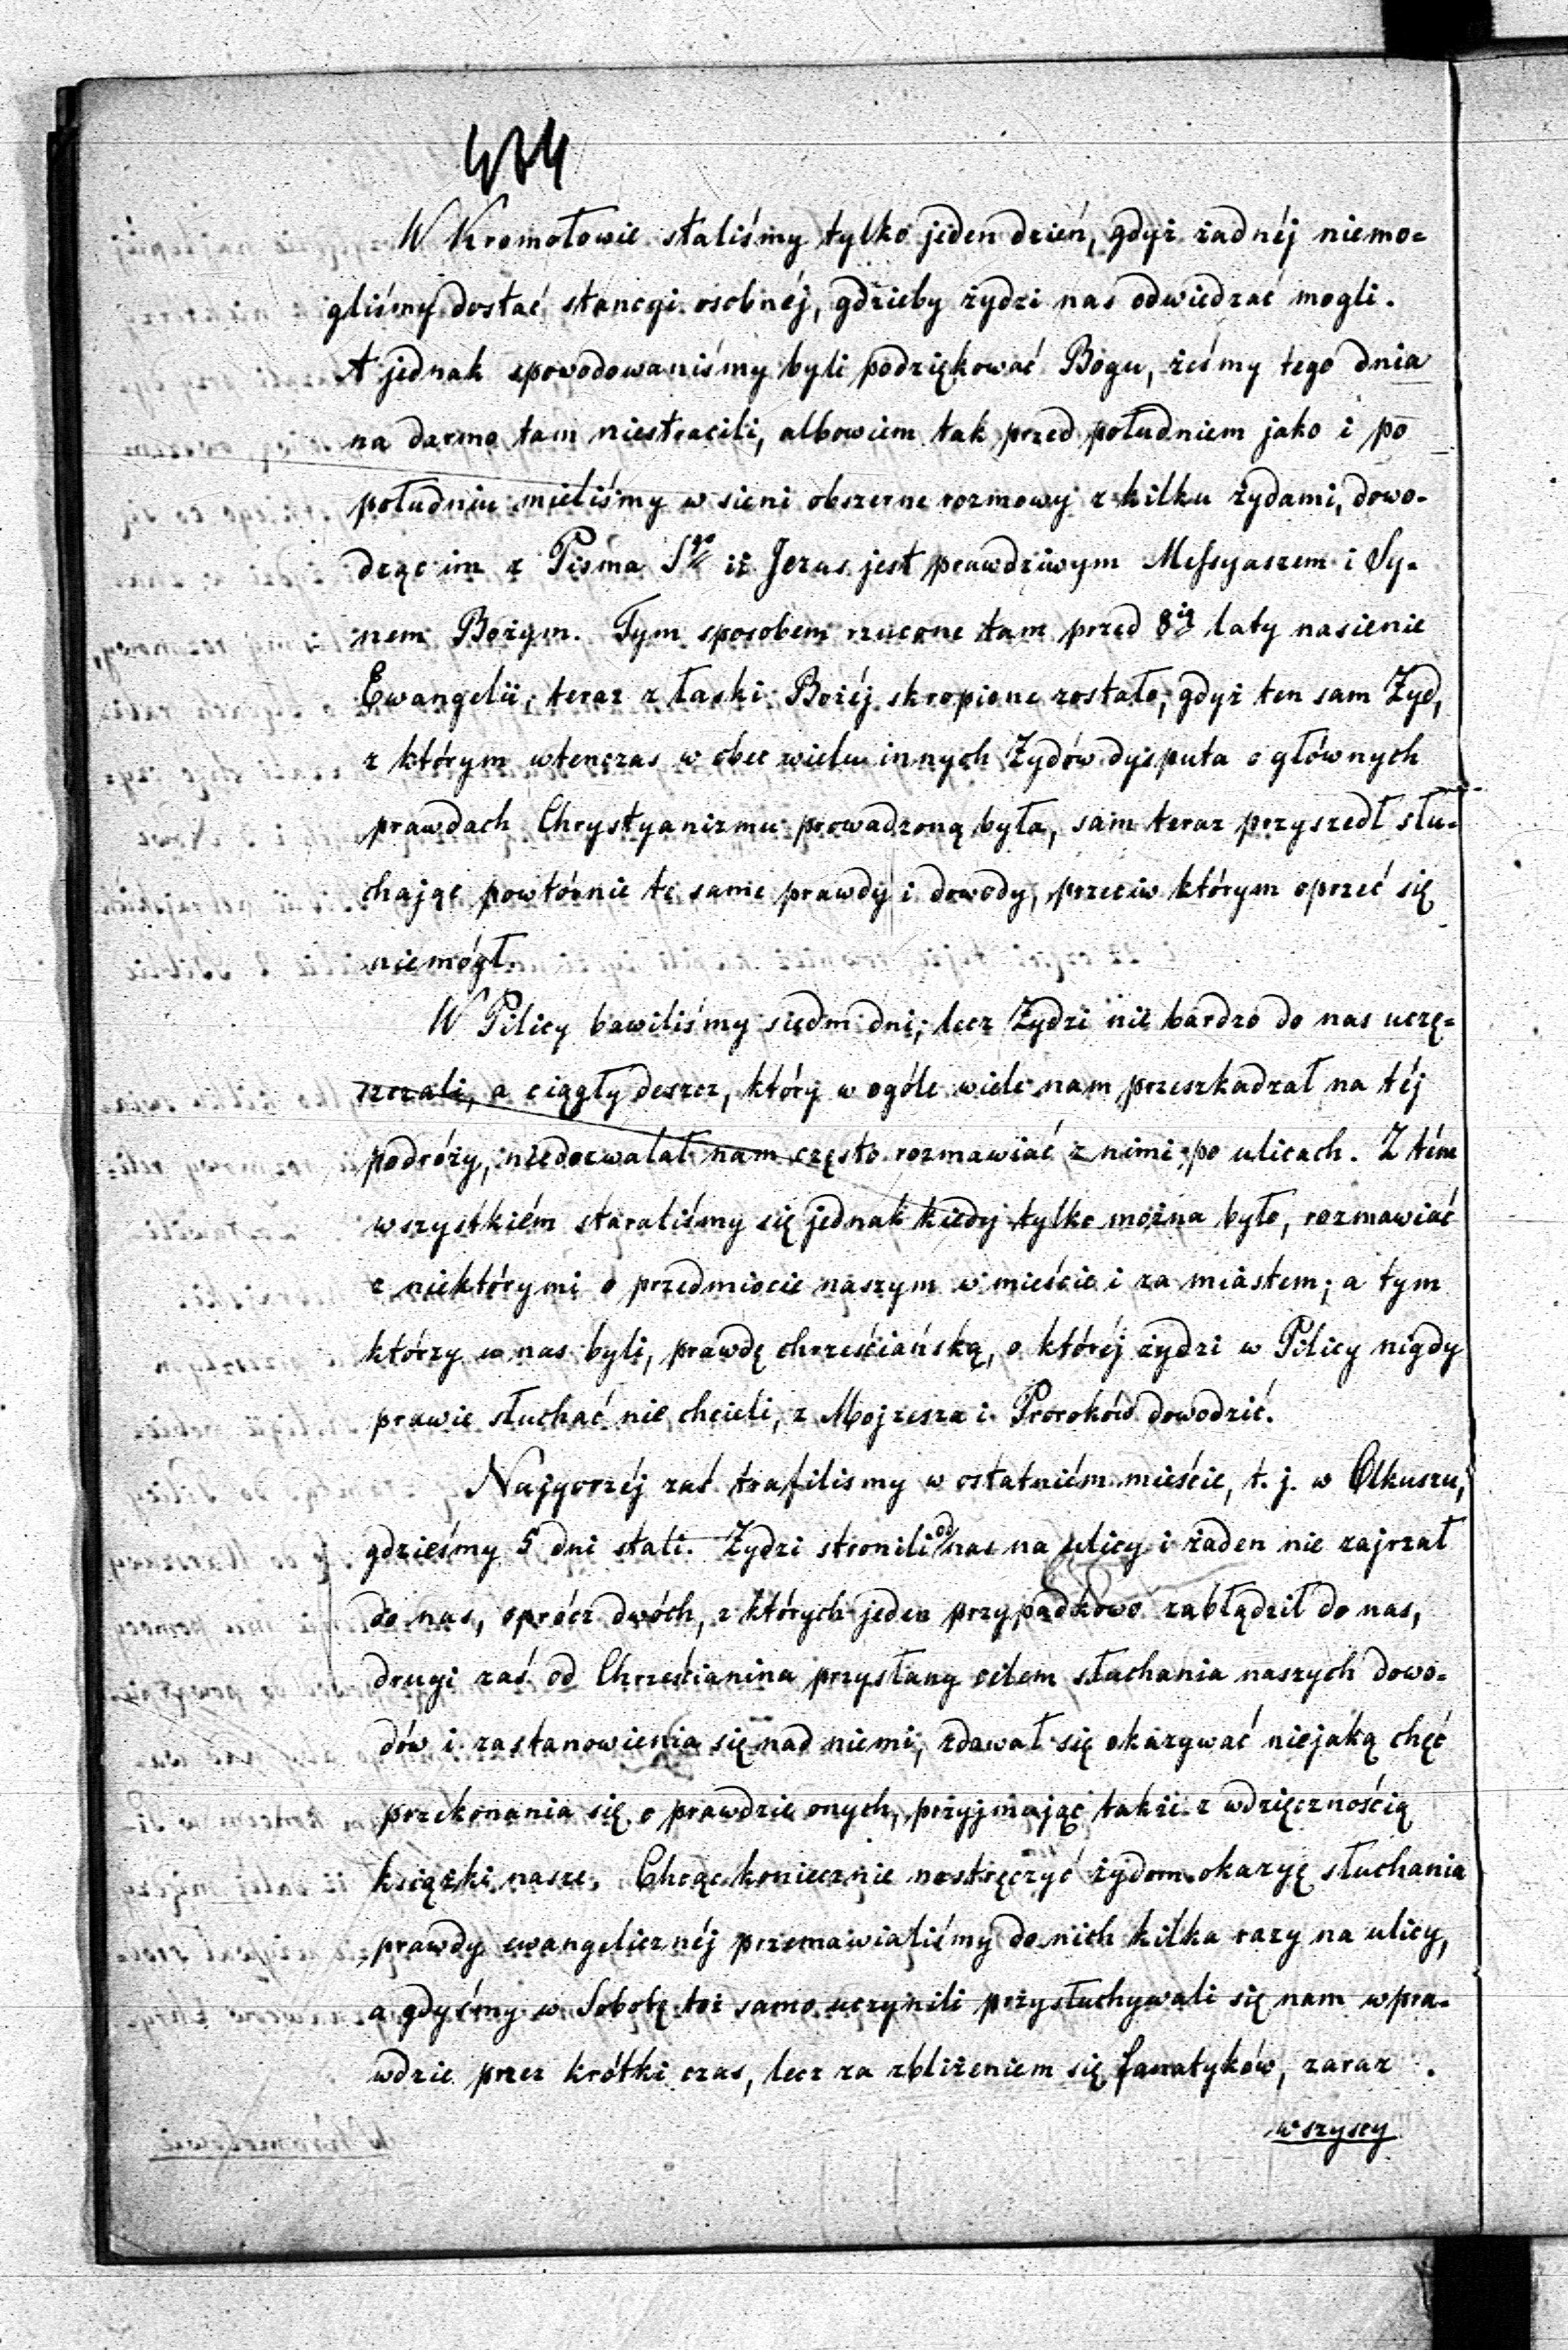 W Kromołowie staliśmy tylko jeden dzień, gdyż żadnéj niemo=
gliśmy dostać stancyi osobnéj, gdzieby żydzi nas odwiedzać mogli.
A jednak spowodowaniśmy byli podziękować Bogu, żeśmy tego dnia
na darmo tam niestracili, albowiem tak przed południem jako i po
południu mieliśmy w sieni obszerne rozmowy z kilku żydami, dowo=
dząc im z Pisma Sgo iż Jezus jest prawdziwym Messyaszem i Sy=
nem Bożym. Tym sposobem rzucone tam przed 8ią laty nasienie
Ewangelii, teraz z łaski Bożéj skropione zostało, gdyż ten sam Żyd,
z którym wtenczas w obec wielu innych Żydów dysputa o głównych
prawdach Chrystyanizmu prowadzoną była, sam teraz przyszedł słu=
chając powtórnie te same prawdy i dowody, przeciw którym oprzeć się
niemógł.
W Pilicy bawiliśmy siedm dni; lecz Żydzi nie bardzo do nas uczę=
szczali, a ciągły deszcz, który w ogóle wiele nam przeszkadzał na téj
podróży, niedozwalał nam często rozmawiać z nimi po ulicach. Z tém
wszystkiém staraliśmy się jednak kiedy tylko można było, rozmawiać
z niektórymi o przedmiocie naszym w mieście i za miastem; a tym
którzy u nas byli, prawdę chrześciańską, o któréj żydzi w Pilicy nigdy
prawie słuchać nie chcieli, z Mojżesza i Proroków dowodzić.
Najgorzéj zaś trafilismy w ostatniém mieście, t. j. w Olkuszu,
gdzieśmy 5 dni stali. Żydzi stronili od nas na ulicy i żaden nie zajrzał
do nas, oprócz dwóch, z których jeden przypadkowo zabłądził do nas,
drugi zaś od Chrześcianina przysłany celem słuchania naszych dowo=
dów i zastanowienia się nad niemi, zdawał się okazywać niejaką chęć
przekonania się o prawdzie onych, przyjmując także z wdzięcznością
książki nasze. Chcąc koniecznie nastręczyć żydom okazyę słuchania
prawdy ewangelicznéj przemawialiśmy do nich kilka razy na ulicy,
a gdyśmy w Sobotę toż samo uczynili przysłuchywali się nam wpra=
wdzie przez krótki czas, lecz za zbliżeniem się fanatyków, zaraz
wszyscy